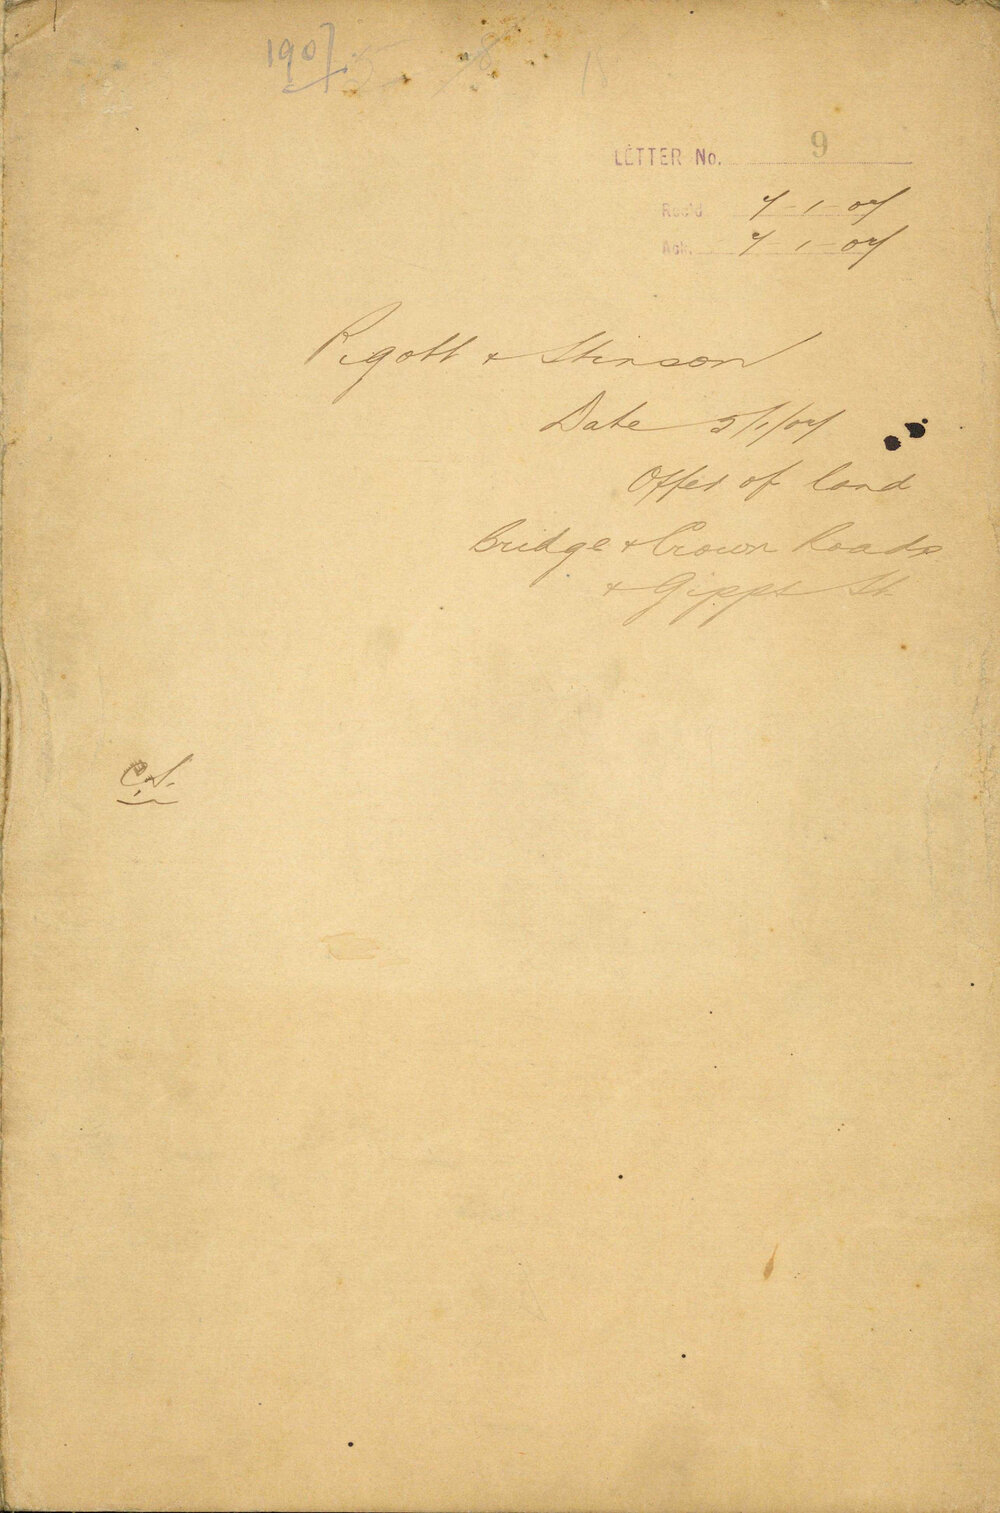 1907
LETTER No. 9
Rec'd 7-1-07
Ack. 7-1-07
Pigott & Stinson
Date 5/1/07
Offer of land
Bridge & Crown Roads
& Gipps St.
C.S.